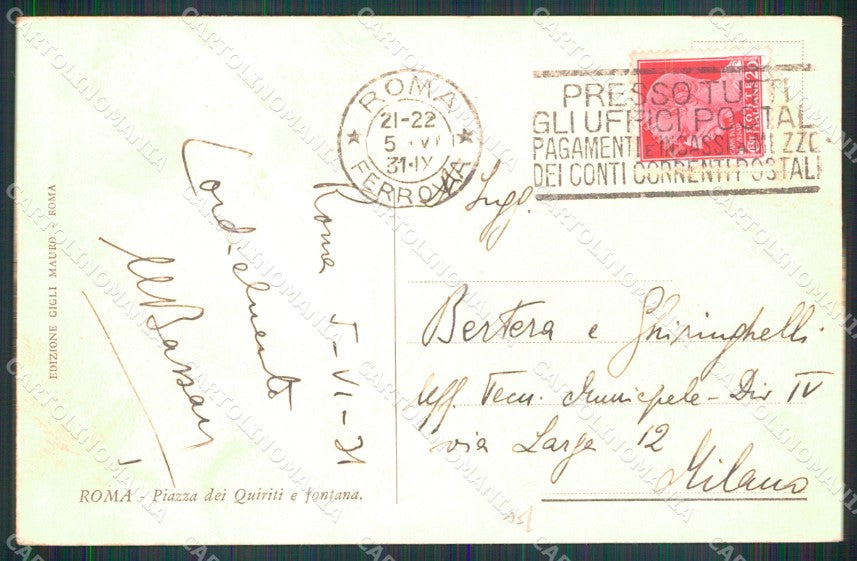 ROMA
21-22
5·VI
31·IX
FERROVIA
PRESSO TUTTI
GLI UFFICI POSTALI
PAGAMENTI E INCASSI A MEZZO
DEI CONTI CORRENTI POSTALI
Cordialmente
Roma 5-VI-31
Bertera e Ghiringhelli
Uff. Tecn. Municipale - Div IV
via Larga 12
Milano
EDIZIONE GIGLI MAURO - ROMA
ROMA - Piazza dei Quiriti e fontana.
CARTOLINOMANIA